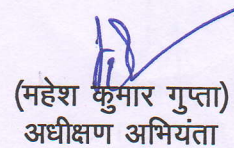 (महेश कुमार गुप्ता)
अधीक्षण अभियंता